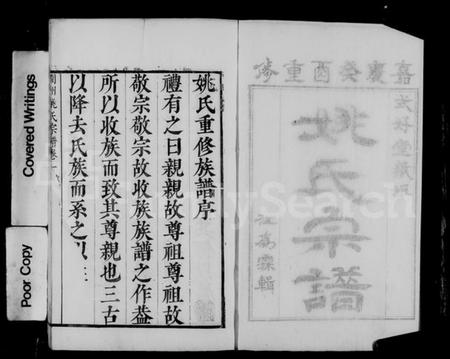 嘉慶癸酉重脩
姚氏宗譜
姚氏重修族譜序
禮有之曰親親故尊祖尊祖故
敬宗敬宗故收族族譜之作葢
所以收族而致其尊親也三古
以降去氏族而系之以
姚氏宗譜卷一
Covered Writings
Poor Copy
FamilySearch